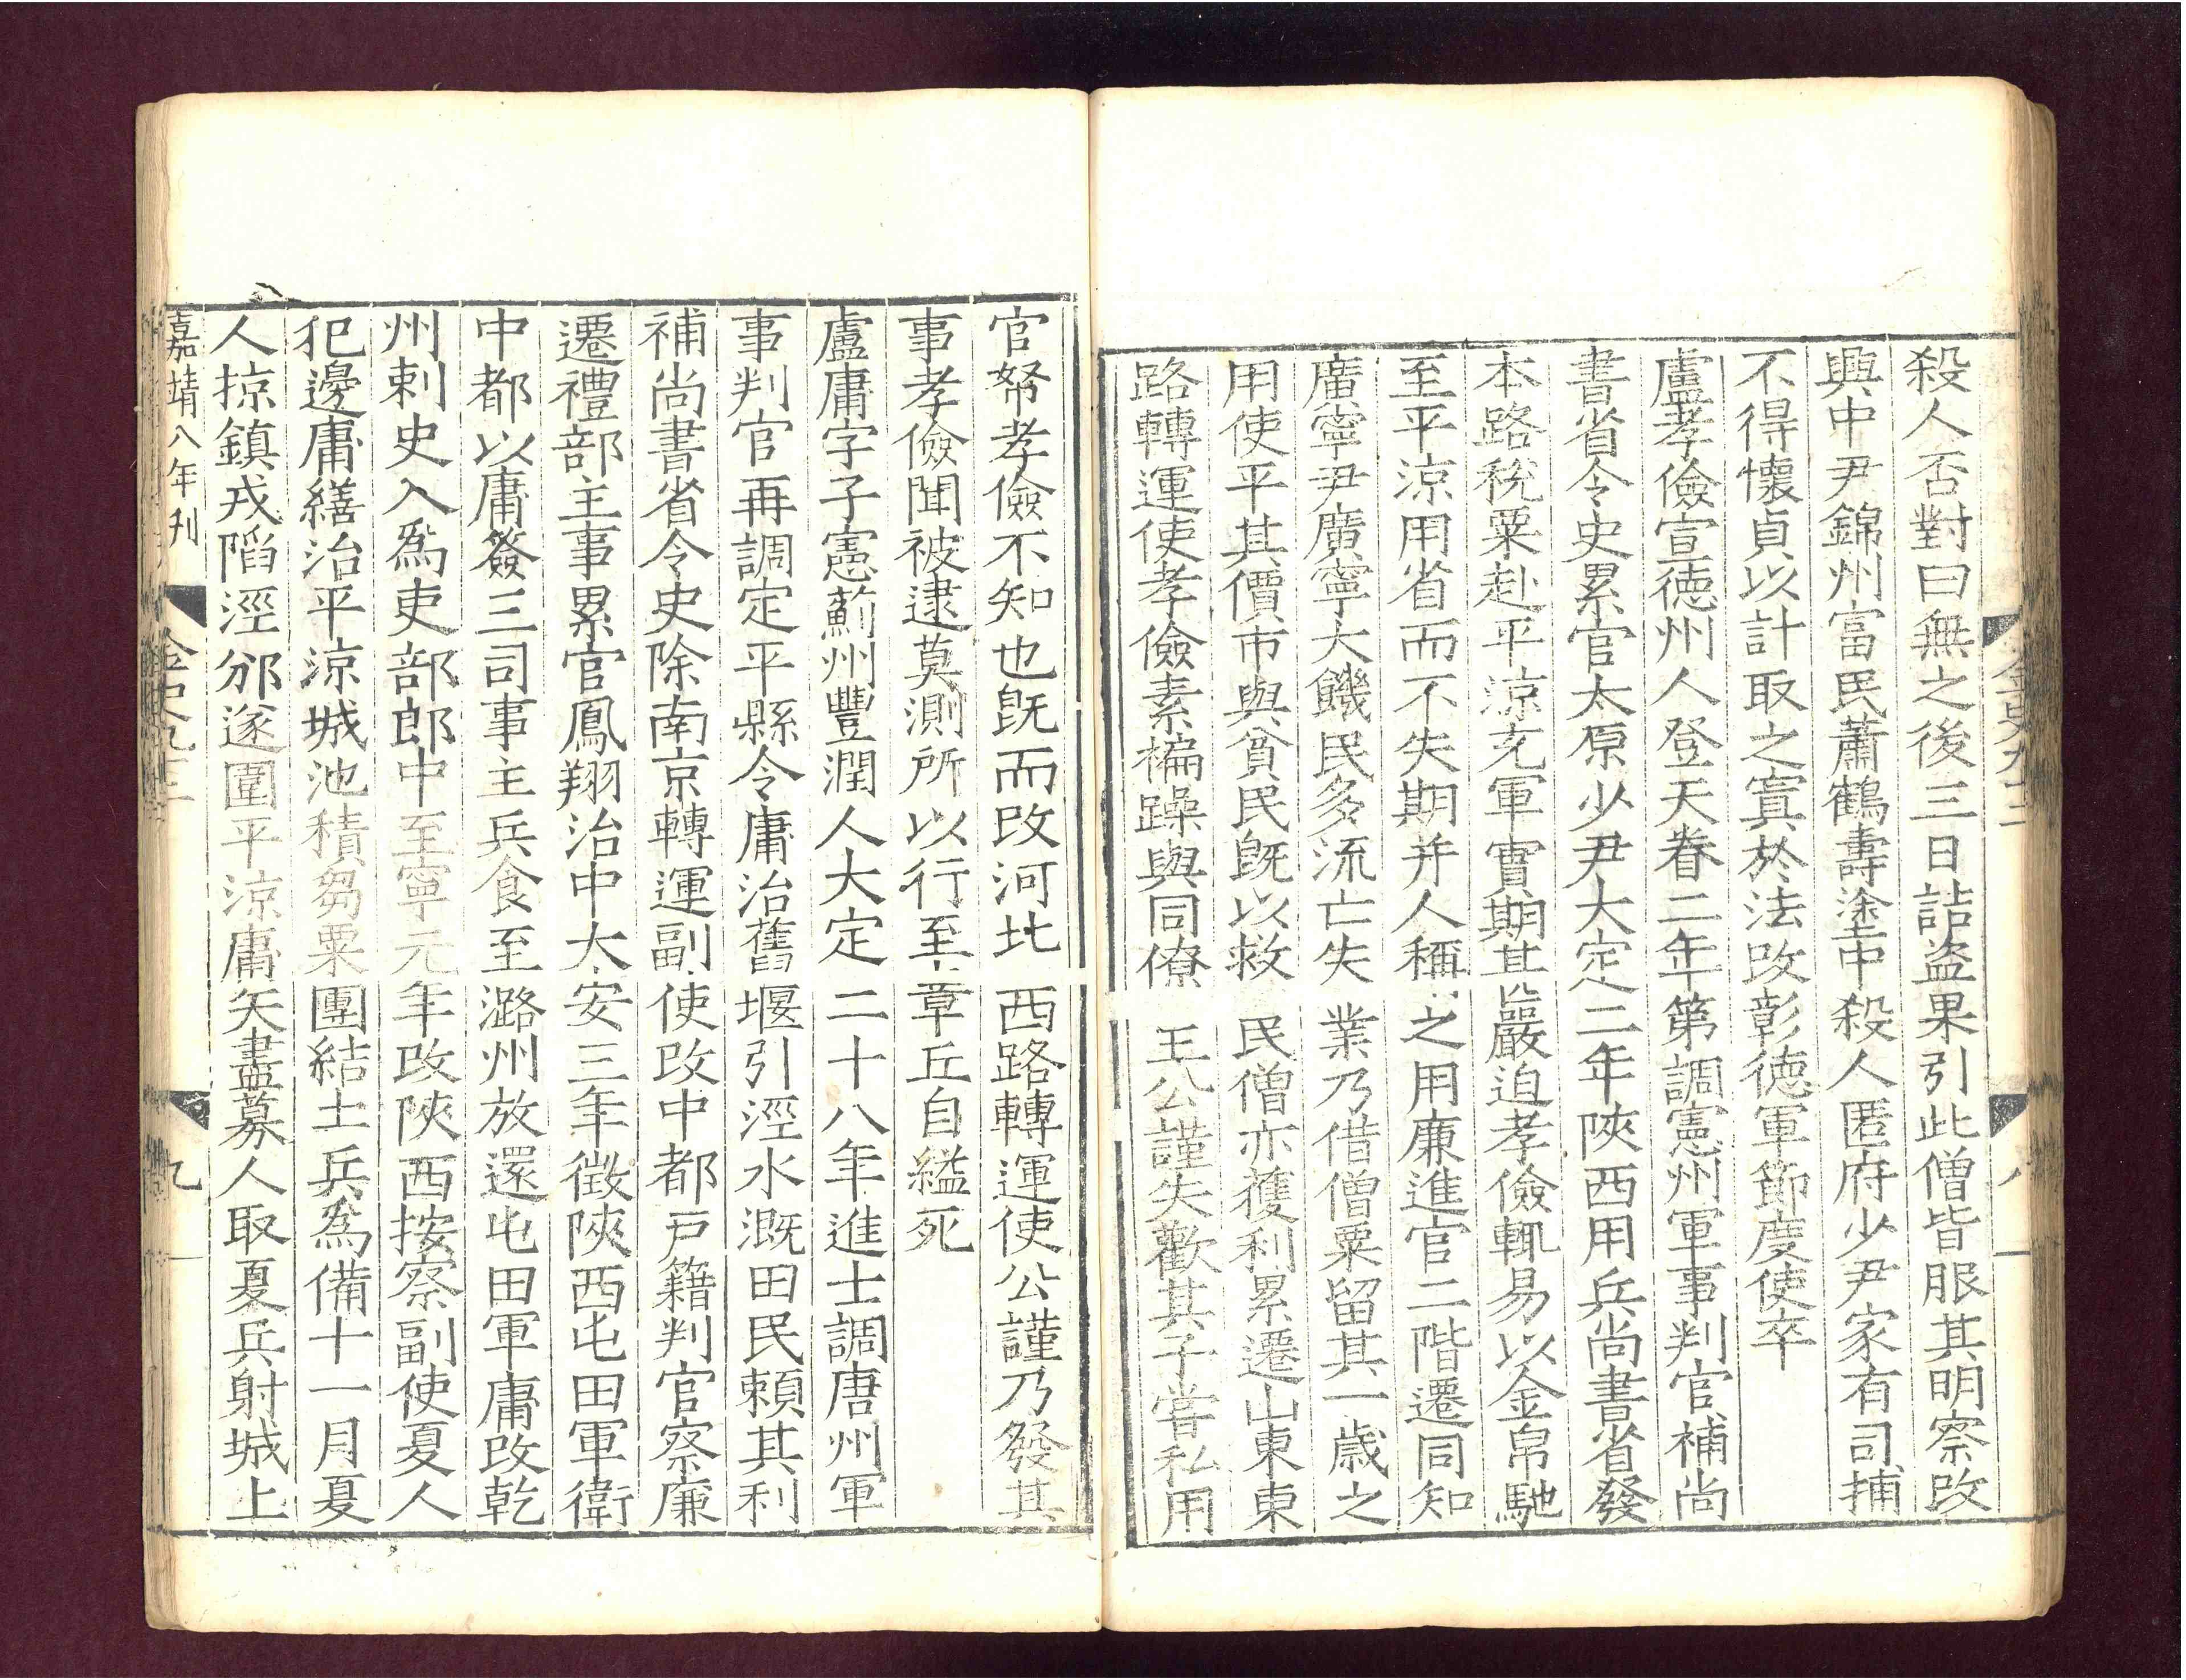 殺人否對曰無之後三日詰盜果引此僧皆服其明察改
興中尹錦州富民蕭鶴壽塗中殺人匿府少尹家有司捕
不得懷貞以計取之寘於法改彰德軍節度使卒
盧孝儉宣德州人登天眷二年第調憲州軍事判官補尚
書省令史累官太原少尹大定二年陝西用兵尚書省發
本路稅粟赴平涼充軍實期甚嚴迫孝儉輒易以金帛馳
至平涼用省而不失期并人稱之用廉進官二階遷同知
廣寧尹廣寧大饑民多流亡失業乃借僧粟留其一歲之
用使平其價市與貧民既以救民僧亦獲利累遷山東東
路轉運使孝儉素褊躁與同僚王公謹失歡其子嘗私用
金史九十二
八
官帑孝儉不知也既而改河北西路轉運使公謹乃發其
事孝儉聞被逮莫測所以行至章丘自縊死
盧庸字子憲薊州豐潤人大定二十八年進士調唐州軍
事判官再調定平縣令庸治舊堰引涇水溉田民賴其利
補尚書省令史除南京轉運副使改中都戶籍判官察廉
遷禮部主事累官鳳翔治中大安三年徵陝西屯田軍衛
中都以庸簽三司事主兵食至潞州放還屯田軍庸改乾
州刺史入爲吏部郎中至寧元年改陝西按察副使夏人
犯邊庸繕治平涼城池積芻粟團結土兵爲備十一月夏
人掠鎮戎陷涇邠遂圍平涼庸矢盡募人取夏兵射城上
嘉靖八年刊
金史九十二
九